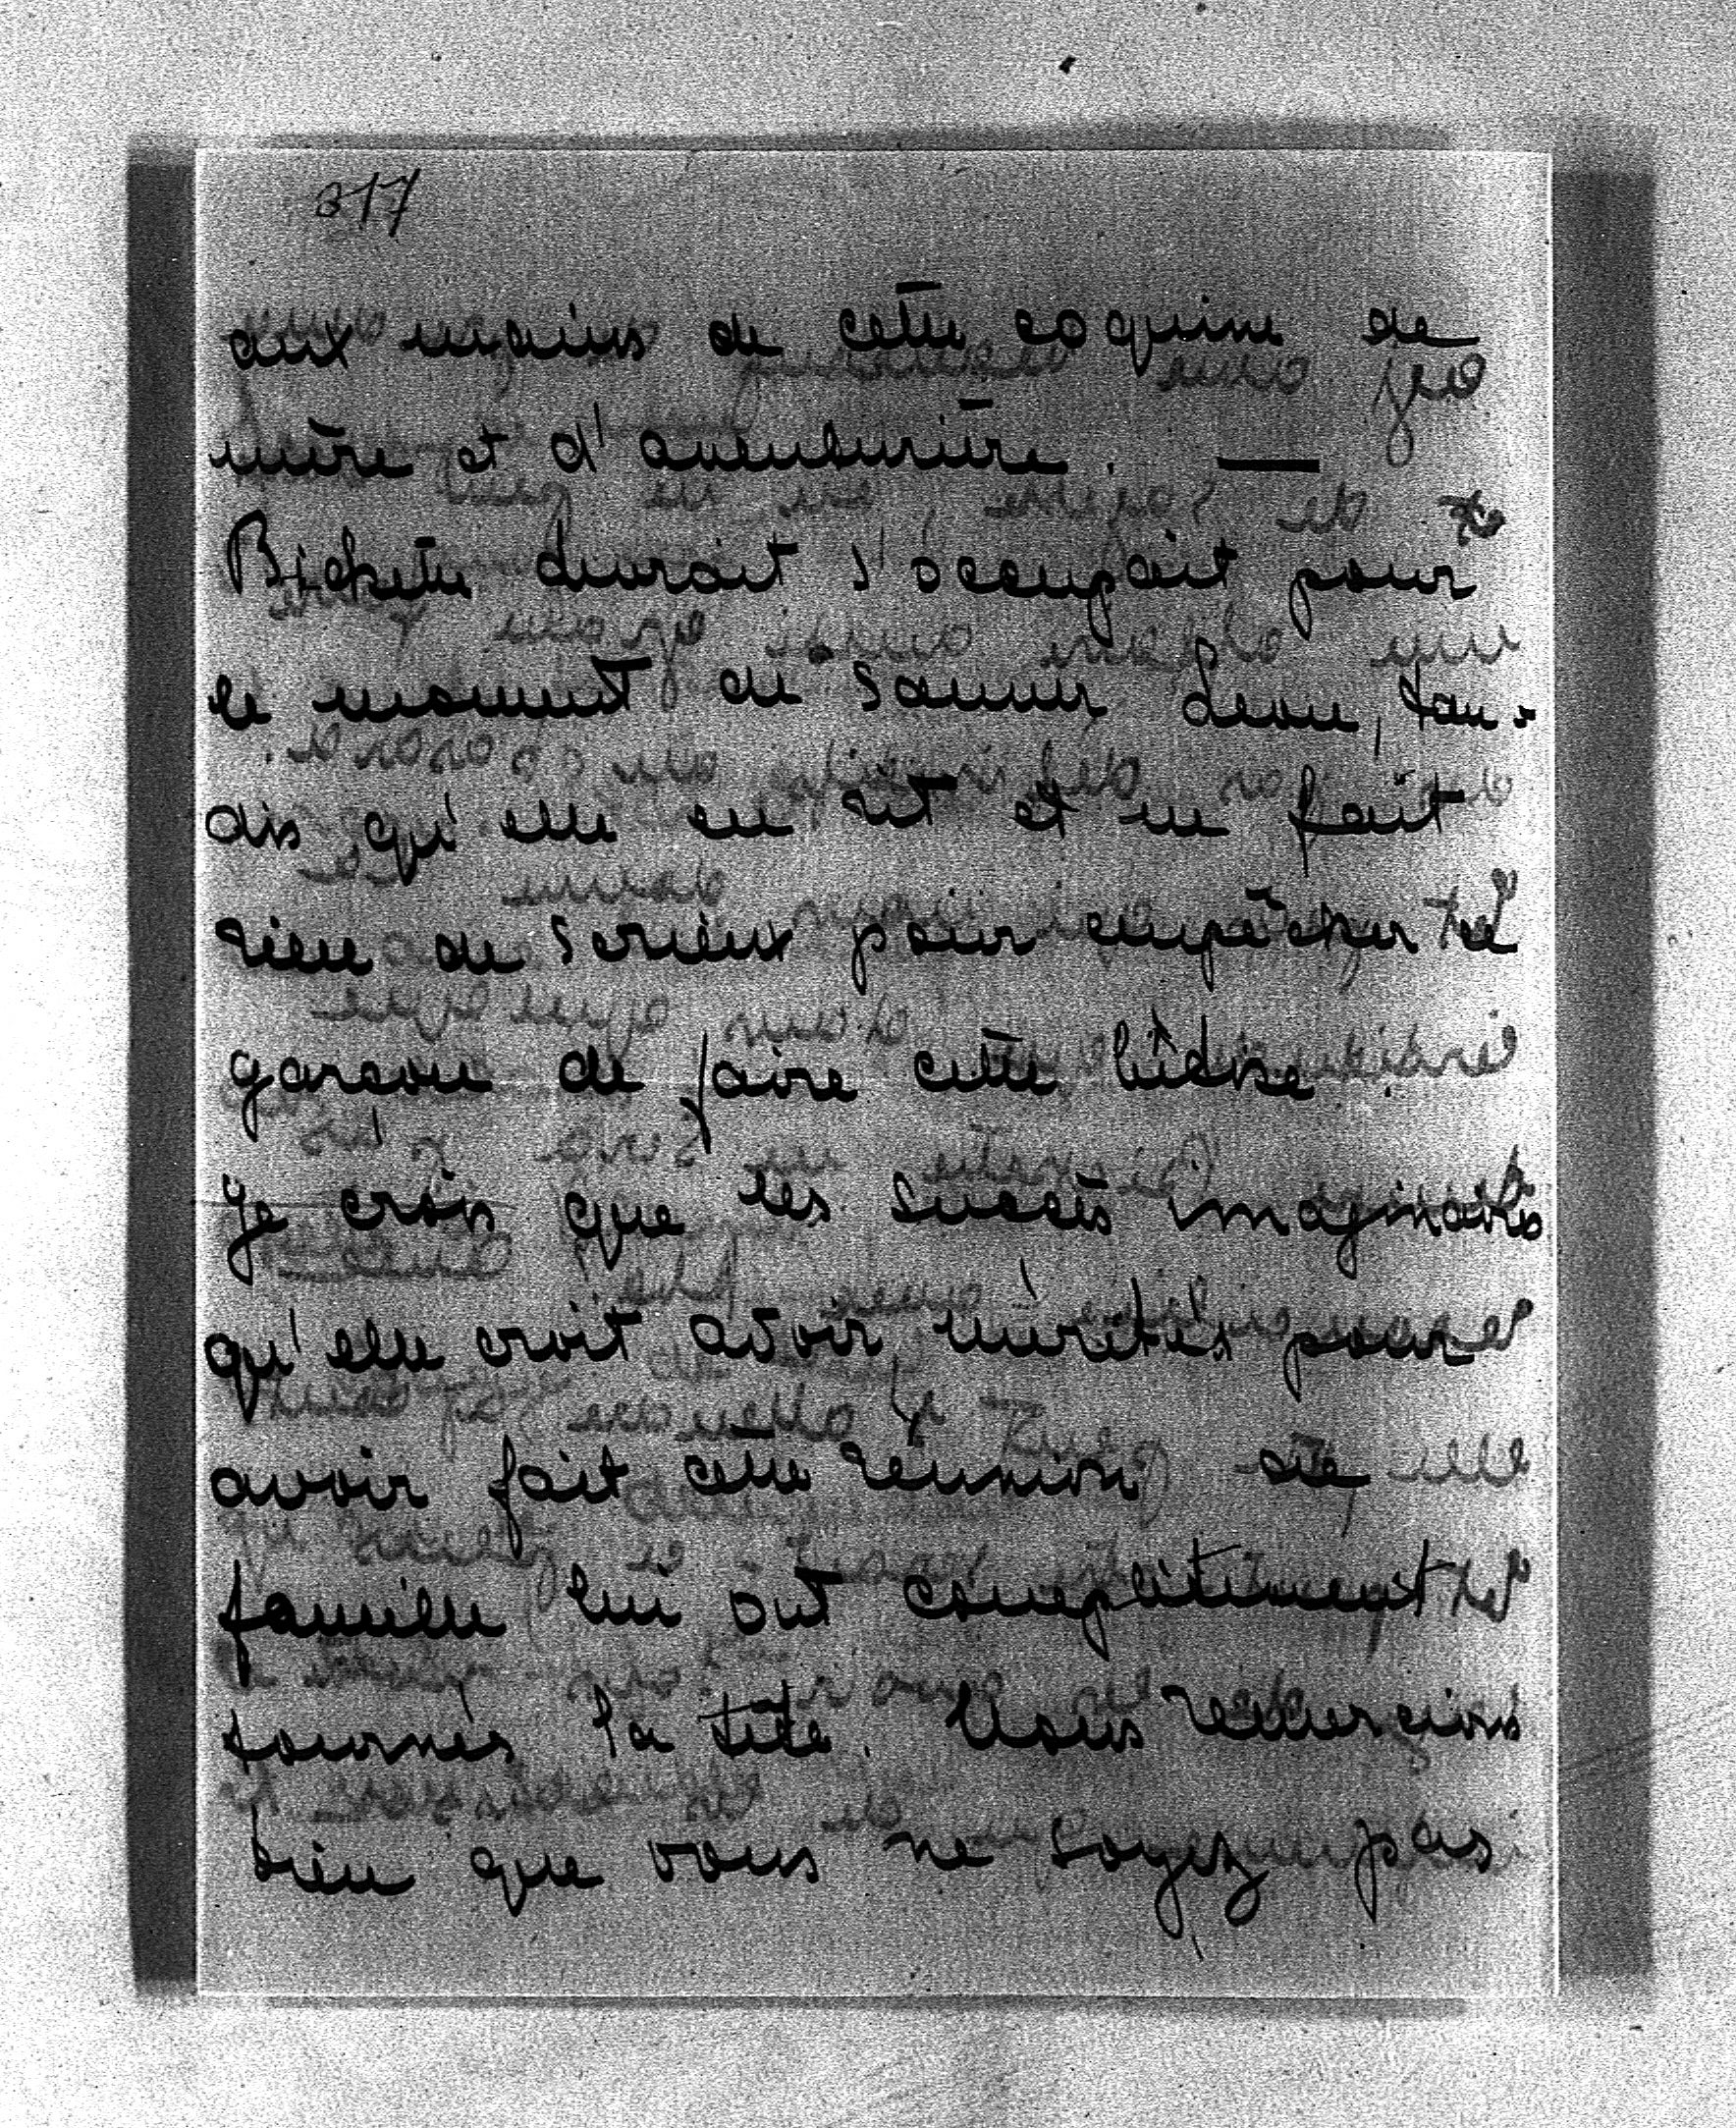 317
aux mains de cette coquine de
mère et d'aventurière. —
Bichette devrait s'occupait pour
le moment de sauver Leon, tan-
dis qu'elle en rit et ne fait
rien de serieux pour empêcher ce
garcon de faire cette bêtise.
Je crois que les succès imaginaires
qu'elle croit avoir mérités pour
avoir fait cette réunion de
famille lui ont complètement
tournés la tête. Nous remercions
bien que vous ne soyez pas